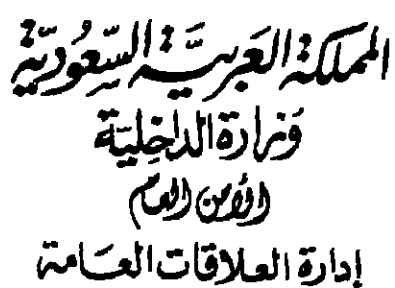 المملكة العربية السعودية
وزارة الداخلية
الأمن العام
إدارة العلاقات العامة